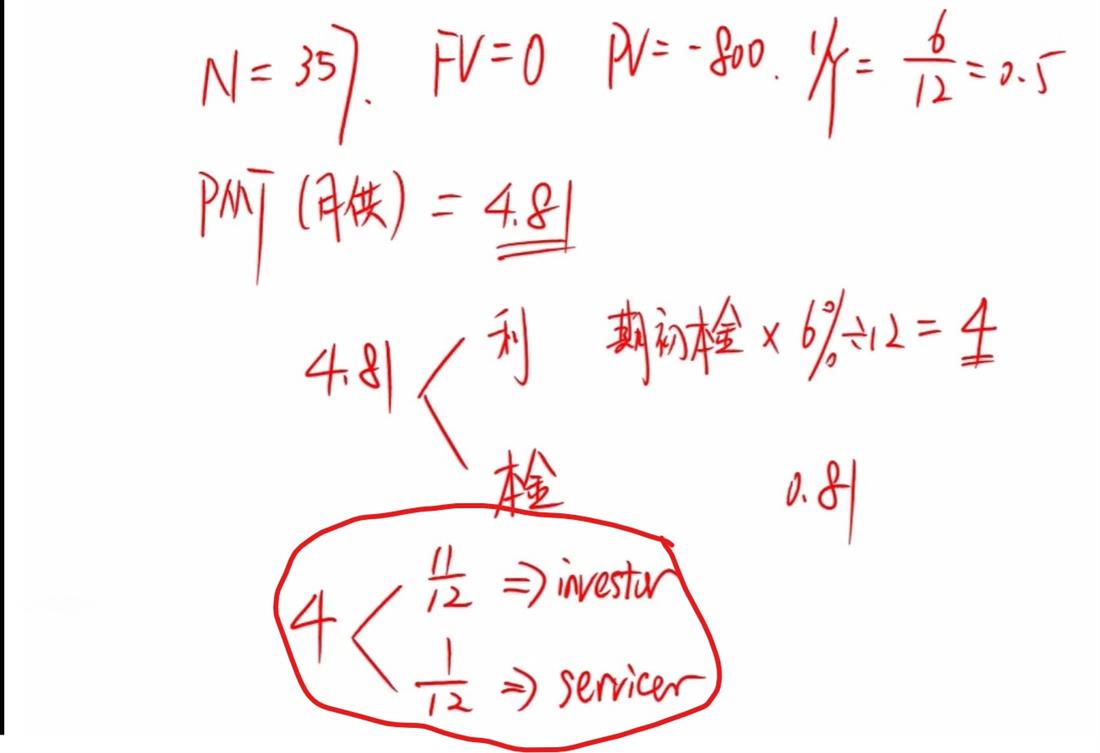 N = 357. FV = 0 PV = -800. I/Y = 6/12 = 0.5
PMT (月供) = 4.81
利 期初本金 × 6% ÷ 12 = 4
4.81
本金 0.81
11/12 ⇒ investor
4
1/12 ⇒ servicer